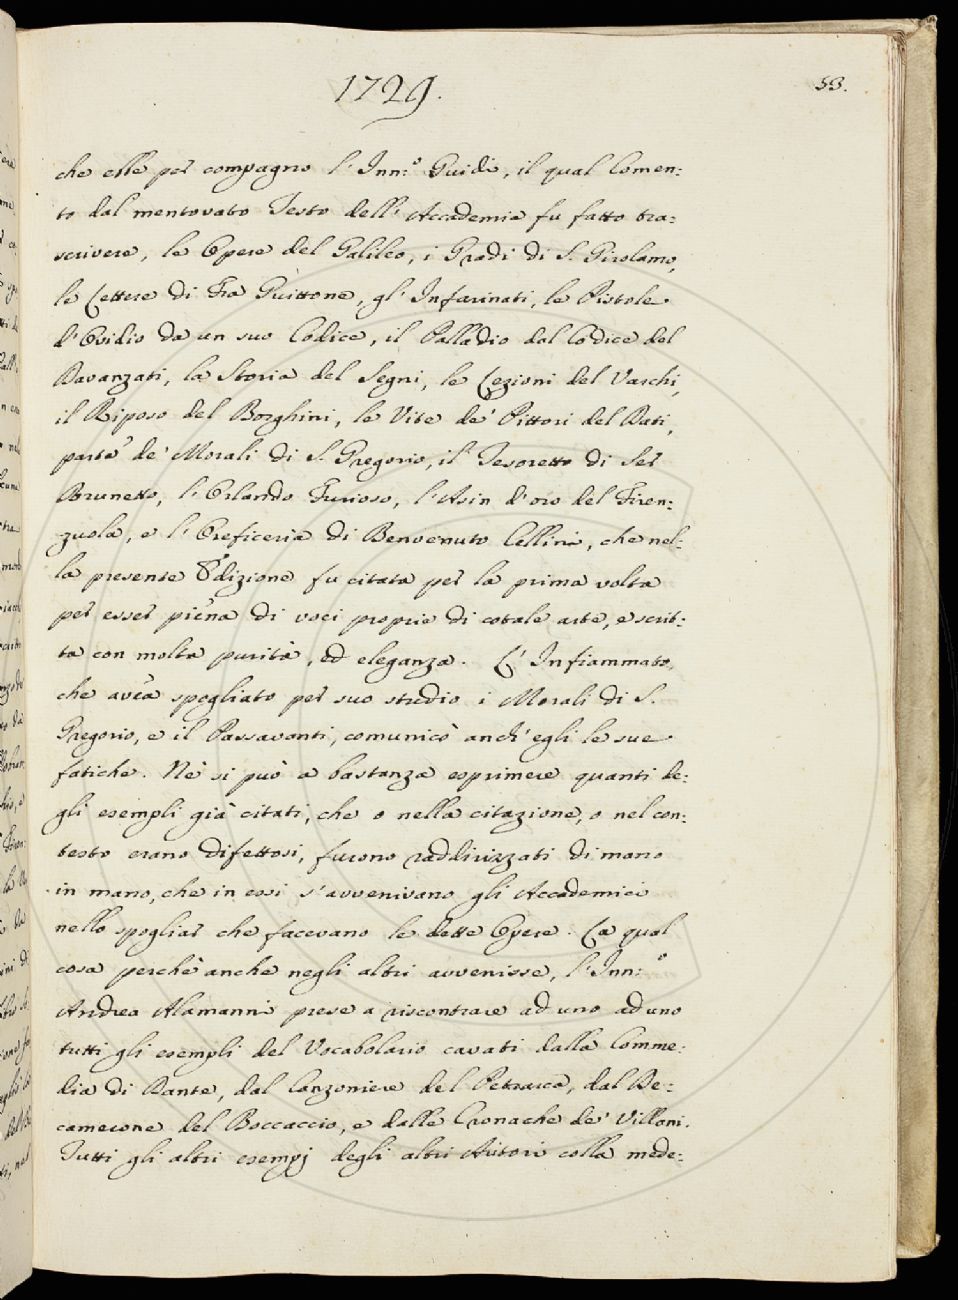 1729.
53.
che ebbe per compagno l'Inn:º Guidi, il qual Comen:
to dal mentovato Testo dell'Accademia fu fatto tra:
scrivere, le Opere del Galileo, i Gradi di S. Girolamo,
le Lettere di Fra Guittone, gl'Infarinati, le Pistole
d'Ovidio da un suo Codice, il Palladio dal Codice del
Davanzati, la Storia del Segni, le Lezioni del Varchi,
il Riposo del Borghini, le Vite de' Pittori del Dati,
parte de' Morali di S. Gregorio, il Tesoretto di Ser
Brunetto, l'Orlando Furioso, l'Asin d'oro del Firen:
zuola, e l'Oreficeria di Benvenuto Cellini, che nel:
la presente Edizione fu citata per la prima volta
per esser piena di voci proprie di cotale arte, e scrit:
ta con molta purità, ed eleganza. L'Infiammato,
che avea spogliato per suo studio i Morali di S.
Gregorio, e il Passavanti, comunicò anch'egli le sue
fatiche. Nè si può a bastanza esprimere quanti de:
gli esempli già citati, che o nella citazione, o nel con:
testo erano difettosi, furono raddirizzati di mano
in mano, che in essi s'avvenivano gli Accademici
nello spogliar che facevano le dette Opere. La qual
cosa perchè anche negli altri avvenisse, l'Inn:º
Andrea Alamanni prese a riscontrare ad uno ad uno
tutti gli esempli del Vocabolario cavati dalla Comme:
dia di Dante, dal Canzoniere del Petrarca, dal De:
camerone del Boccaccio, e dalle Cronache de' Villani.
Tutti gli altri esempj degli altri Autori colla mede: